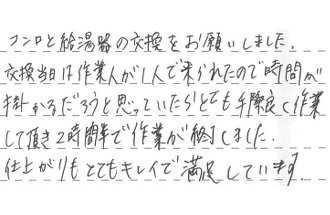 コンロと給湯器の交換をお願いしました。
交換当日は作業人が1人で来られたので時間が
掛かるだろうと思っていたらとても手際良く作業
して頂き2時間半で作業が終了しました。
仕上がりもとてもキレイで満足しています。